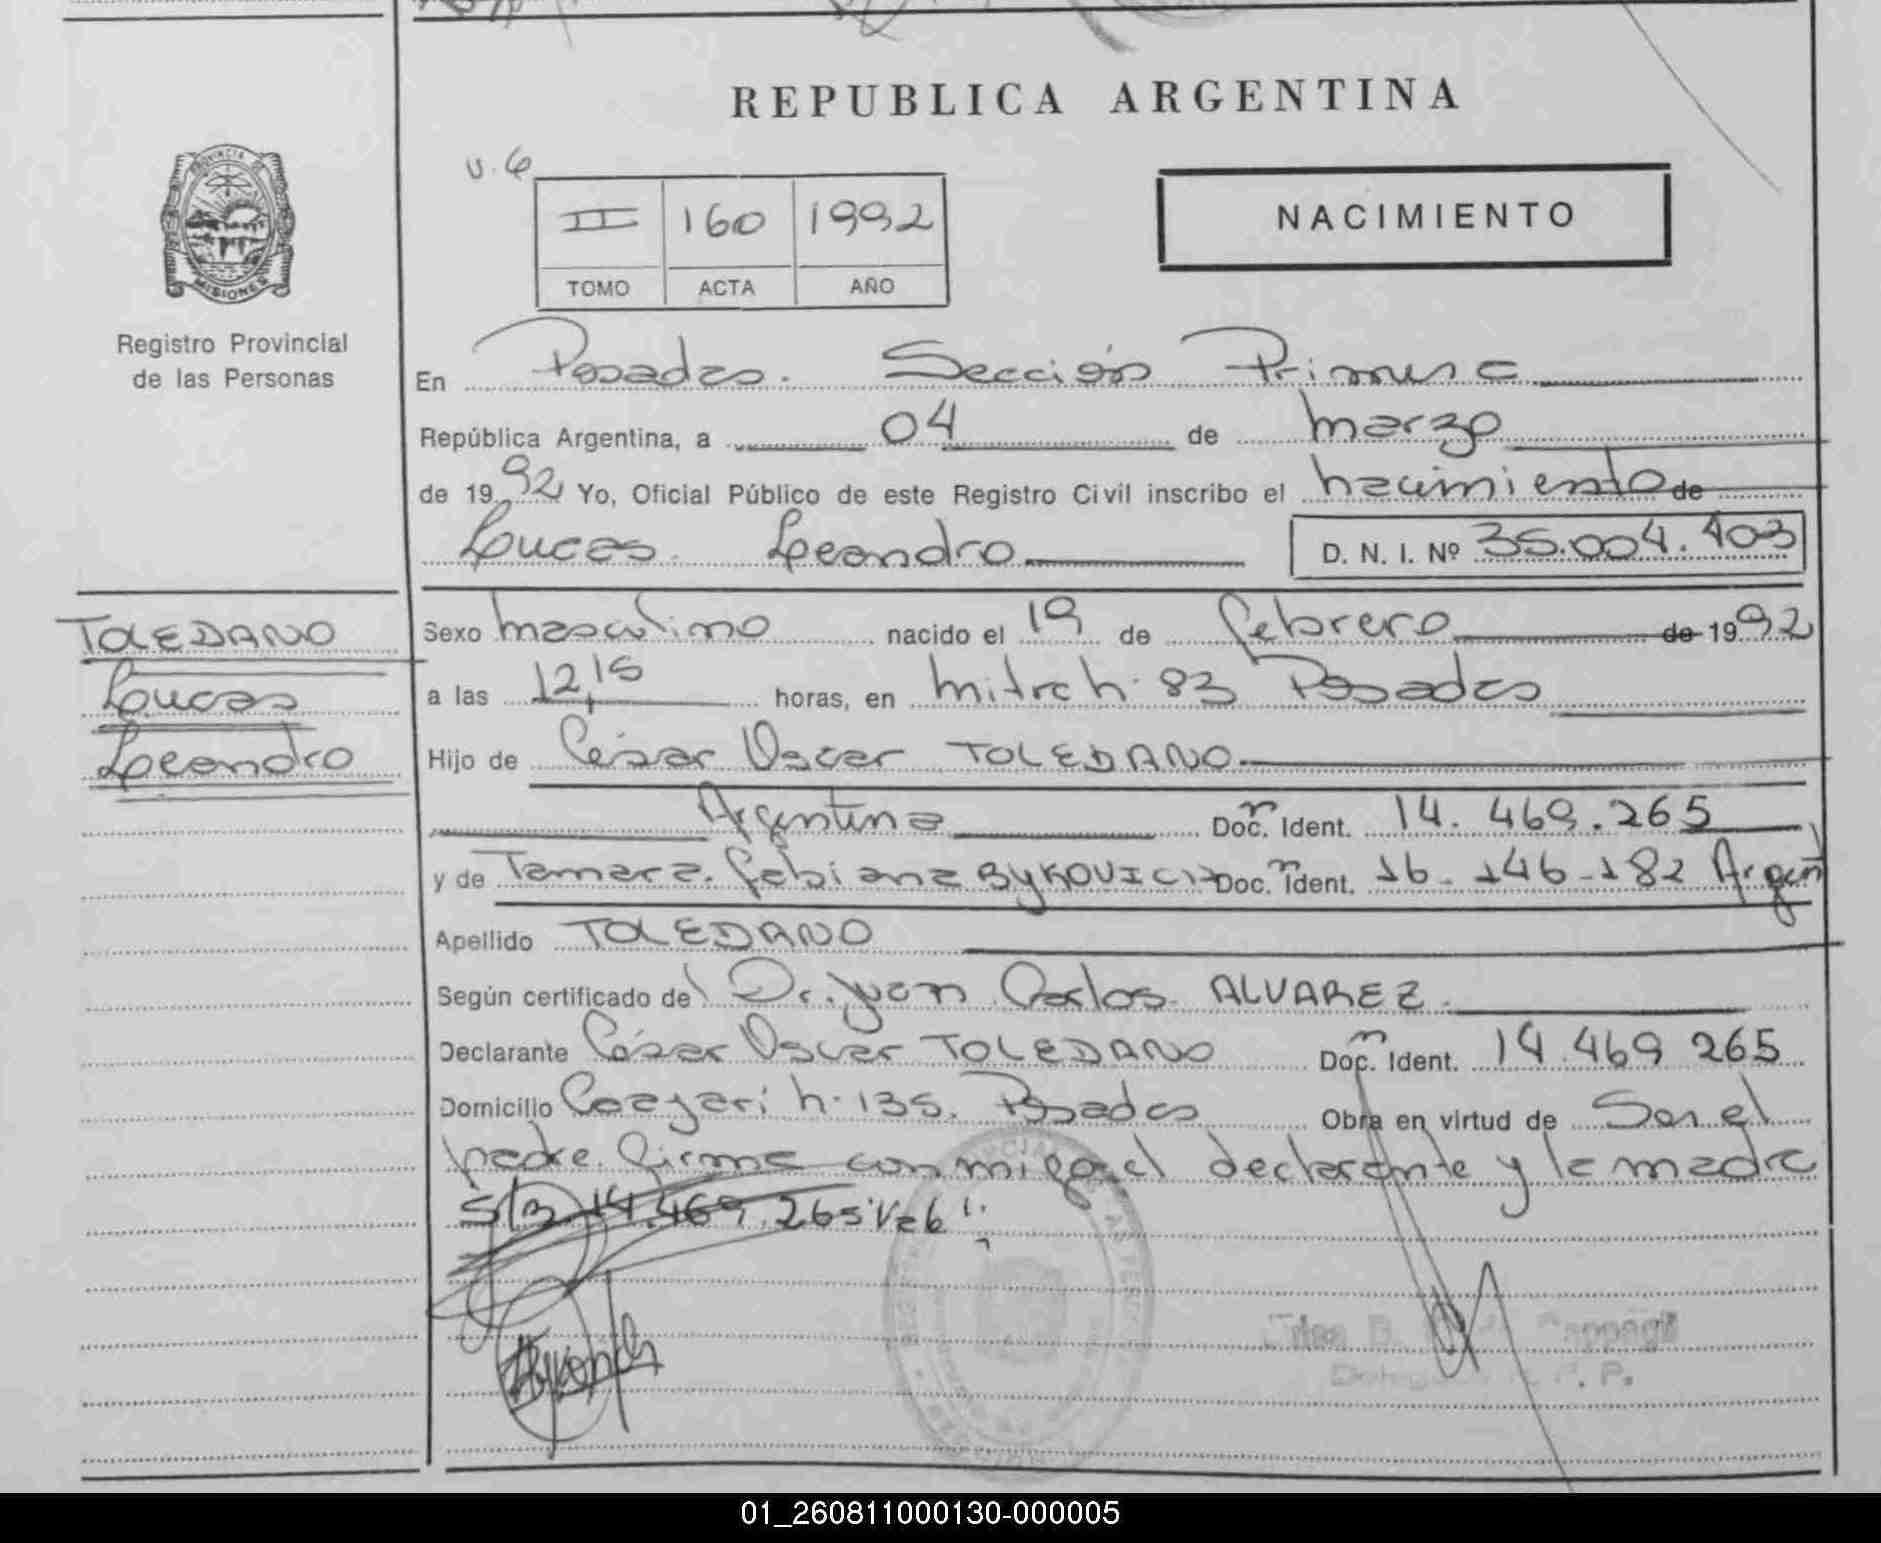 REPUBLICA ARGENTINA
v. 6
II 160 1992
TOMO ACTA AÑO
NACIMIENTO
PROVINCIA DE
MISIONES
Registro Provincial
de las Personas
En Posadas. Sección Primera
República Argentina, a 04 de marzo
de 1992 Yo, Oficial Público de este Registro Civil inscribo el nacimiento de
Lucas Leandro D. N. I. Nº 35.004.403
TOLEDANO
Lucas
Leandro
Sexo masculino nacido el 19 de febrero de 1992
a las 12,15 horas, en mitre n. 83 Posadas
Hijo de César Oscar TOLEDANO
Argentina Doc. Ident. 14.469.265
y de Tamara Fabiana BYKOVICH Doc. Ident. 16-146-182 Argent
Apellido TOLEDANO
Según certificado del Dr. Juan Carlos ALVAREZ
Declarante César Oscar TOLEDANO Doc. Ident. 14.469 265
Domicilio n. 135. Posadas Obra en virtud de Ser el
padre. Firma conmigo el declarante y la madre
S/B 14.469.265 Val
P. P.
01_260811000130-000005